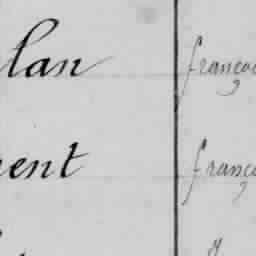 lan françai
ent franç